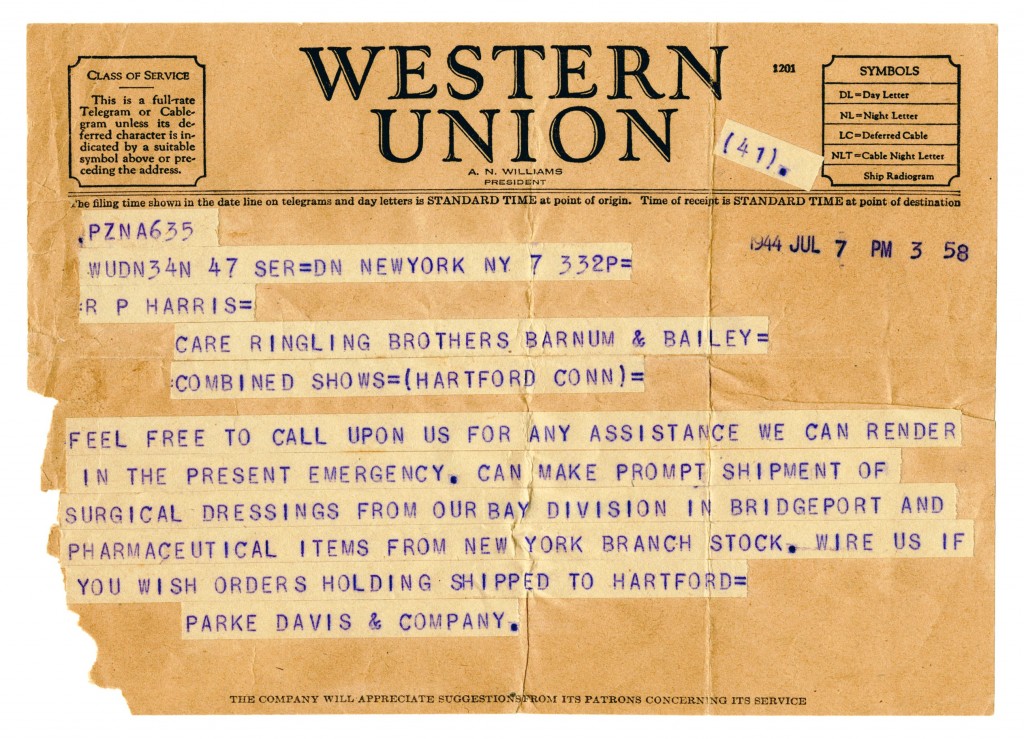 CLASS OF SERVICE
This is a full-rate
Telegram or Cable-
gram unless its de-
ferred character is in-
dicated by a suitable
symbol above or pre-
ceding the address.
WESTERN
UNION
A. N. WILLIAMS
PRESIDENT
1201
(41).
SYMBOLS
DL=Day Letter
NL=Night Letter
LC=Deferred Cable
NLT=Cable Night Letter
Ship Radiogram
The filing time shown in the date line on telegrams and day letters is STANDARD TIME at point of origin. Time of receipt is STANDARD TIME at point of destination
.PZNA635
1944 JUL 7 PM 3 58
WUDN34N 47 SER=DN NEWYORK NY 7 332P=
:R P HARRIS=
CARE RINGLING BROTHERS BARNUM & BAILEY=
:COMBINED SHOWS=(HARTFORD CONN)=
FEEL FREE TO CALL UPON US FOR ANY ASSISTANCE WE CAN RENDER
IN THE PRESENT EMERGENCY. CAN MAKE PROMPT SHIPMENT OF
SURGICAL DRESSINGS FROM OUR BAY DIVISION IN BRIDGEPORT AND
PHARMACEUTICAL ITEMS FROM NEW YORK BRANCH STOCK. WIRE US IF
YOU WISH ORDERS HOLDING SHIPPED TO HARTFORD=
PARKE DAVIS & COMPANY.
THE COMPANY WILL APPRECIATE SUGGESTIONS FROM ITS PATRONS CONCERNING ITS SERVICE